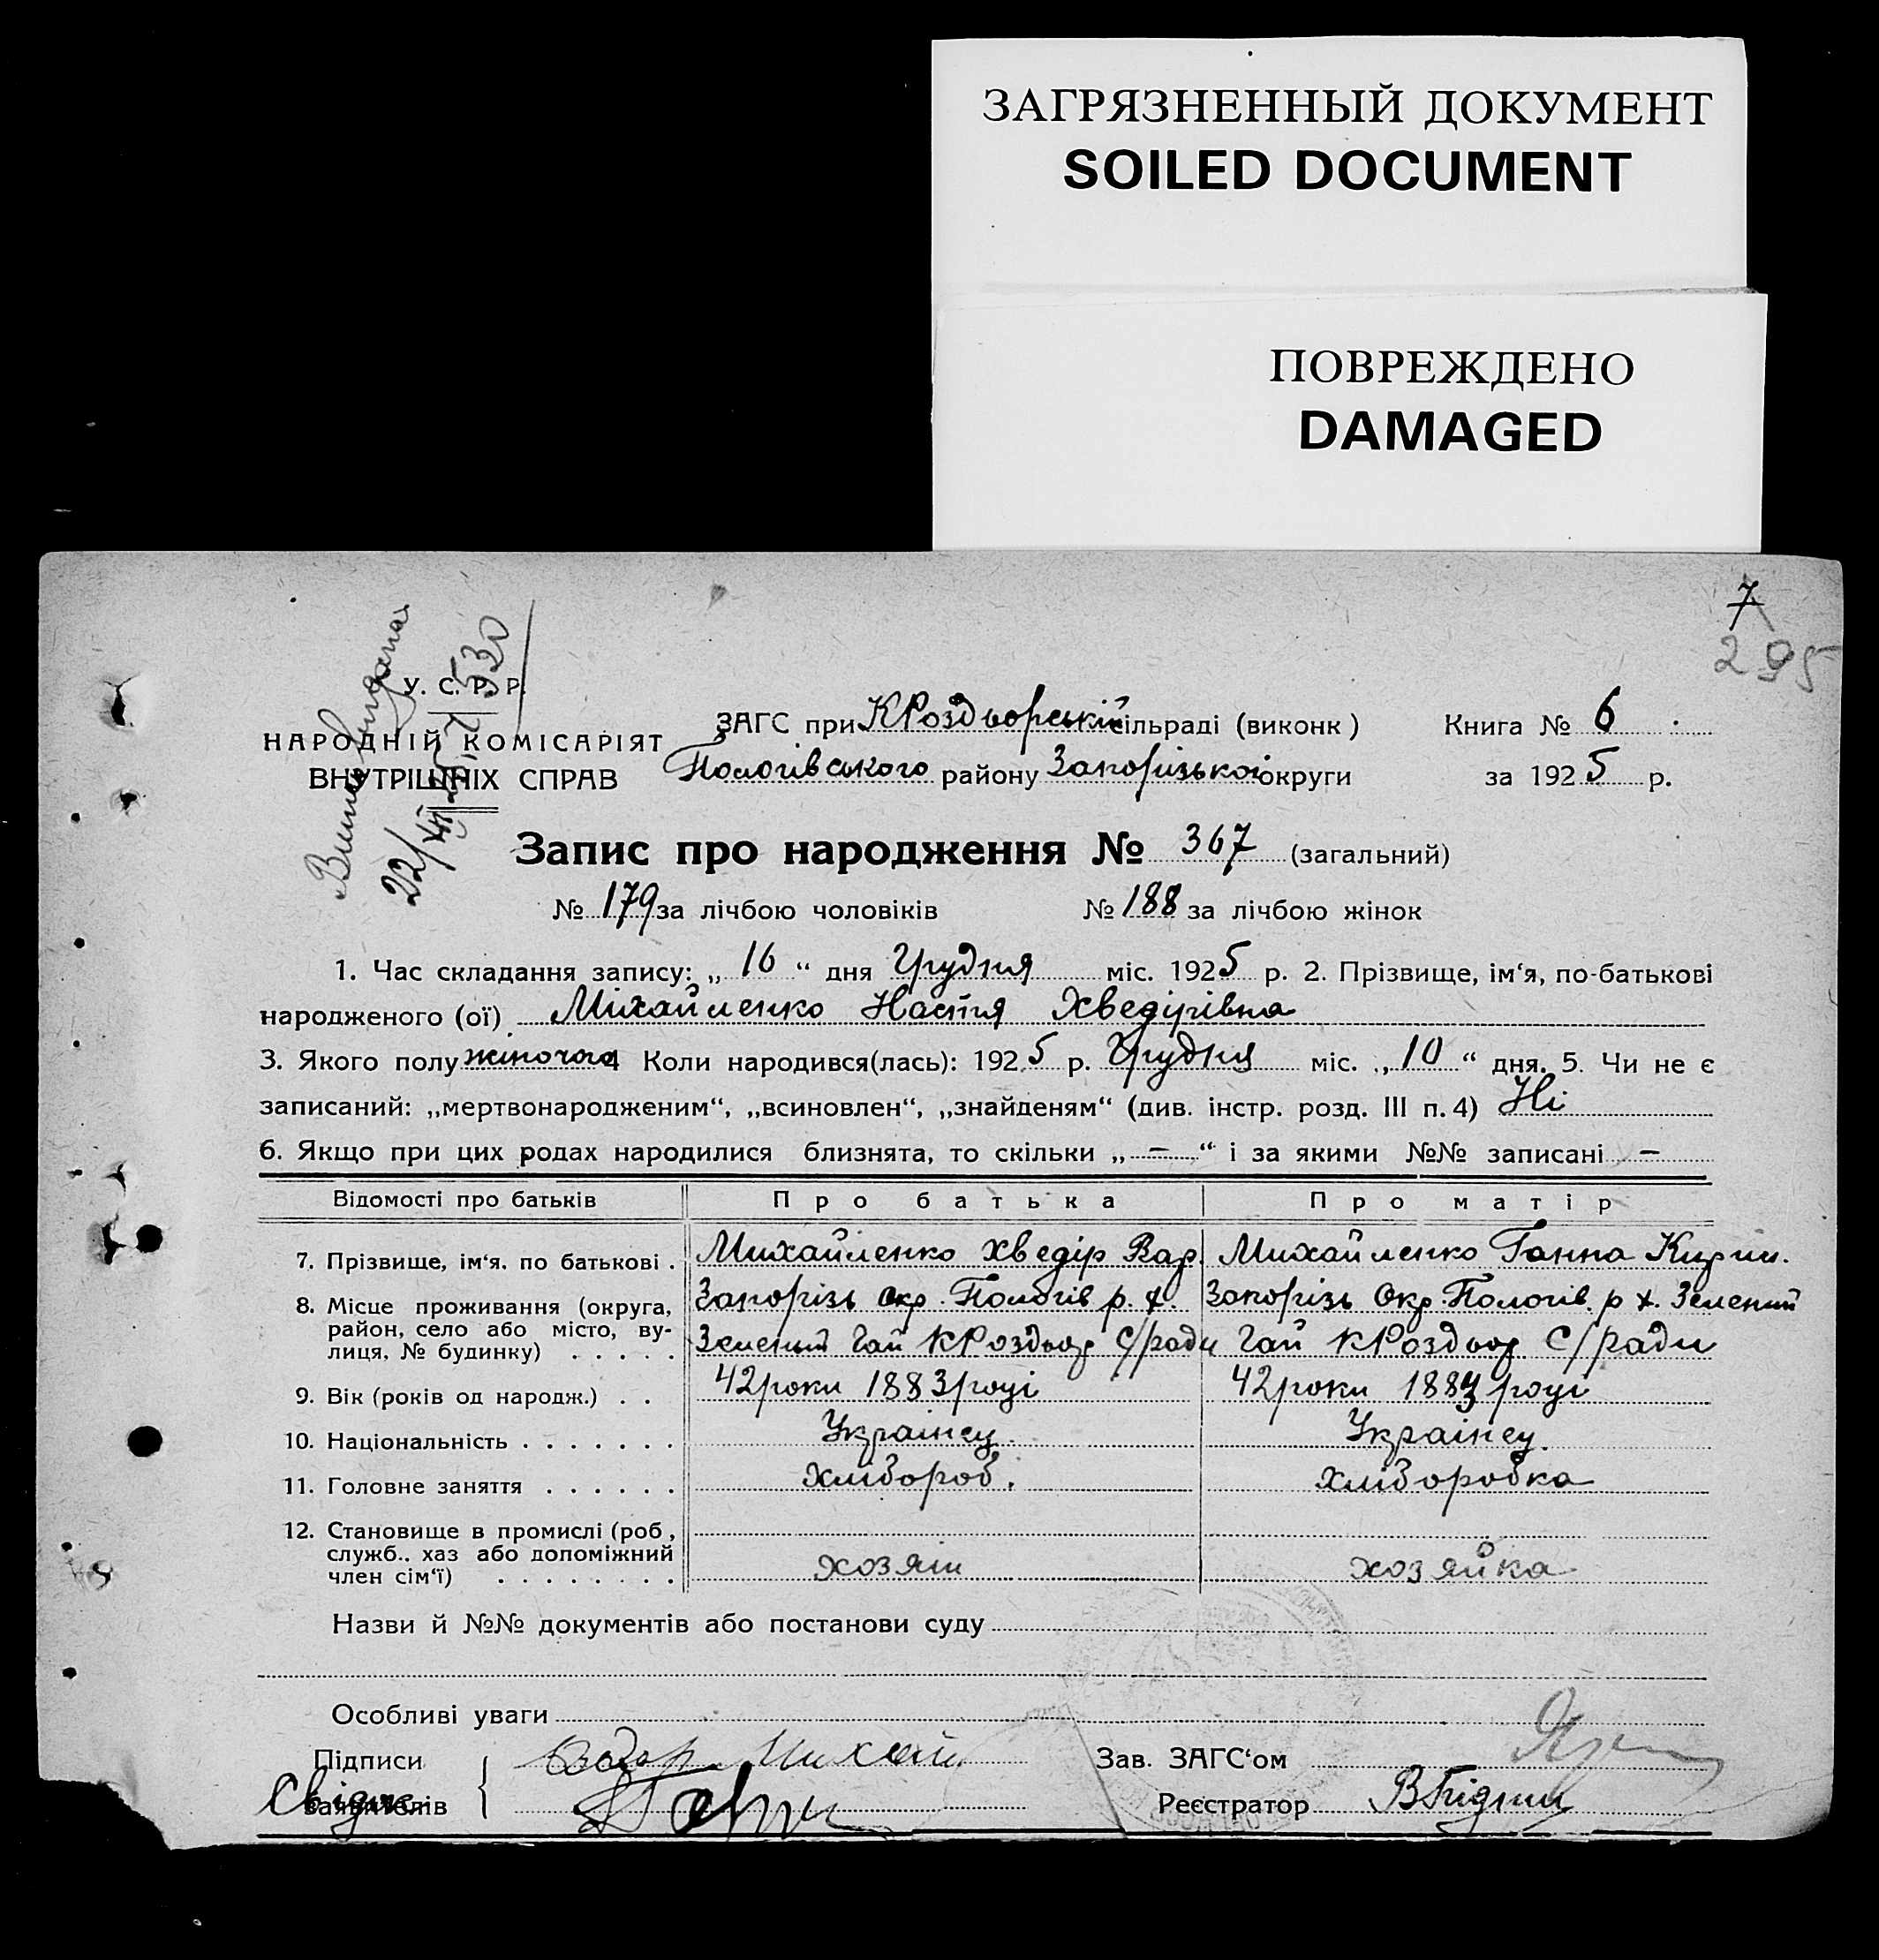 ЗАГРЯЗНЕННЫЙ ДОКУМЕНТ
SOILED DOCUMENT
ПОВРЕЖДЕНО
DAMAGED
7
295
У. С. Р. Р.
НАРОДНІЙ КОМІСАРІЯТ
ВНУТРІШНІХ СПРАВ
ЗАГС при КРоздворській сільраді (виконк)
Пологівського району Запорізької округи
Книга № 6
за 1925 р.
Запис про народження № 367 (загальний)
№ 179 за лічбою чоловіків № 188 за лічбою жінок
1. Час складання запису: „ 16 “ дня Грудня міс. 1925 р. 2. Прізвище, ім‘я, по-батькові
народженого (ої) Міхайленко Настя Хведірівна
3. Якого полу жіночого 4 Коли народився(лась): 1925 р. Грудня міс. „ 10 “ дня. 5. Чи не є
записаний: „мертвонародженим“, „всиновлен“, „знайденям“ (див. інстр. розд. III п. 4) Ні
6. Якщо при цих родах народилися близнята, то скільки „ — “ і за якими №№ записані —
Відомості про батьків Про батька Про матір
7. Прізвище, ім‘я, по батькові . Михайленко Хведір Вар. Михайленко Ганна Кирил.
8. Місце проживання (округа, Запорізь окр. Пологів р. х. Запорізь Окр. Пологів. р х. Зелений
район, село або місто, ву-
лиця, № будинку) . . . . . Зелений Гай КРоздвор с/ради Гай КРоздвор С/ради
9. Вік (років од народж.) . . 42 роки 1883 році 42 роки 1883 році
10. Національність . . . . . . . Українец. Українец.
11. Головне заняття . . . . . . хлібороб. хліборобка
12. Становище в промислі (роб,
служб.. хаз або допоміжний
член сім‘ї) . . . . . . . . хозяін хозяйка
Назви й №№ документів або постанови суду
Особливі уваги
Підписи
заявителів
Зав. ЗАГС‘ом
Реєстратор